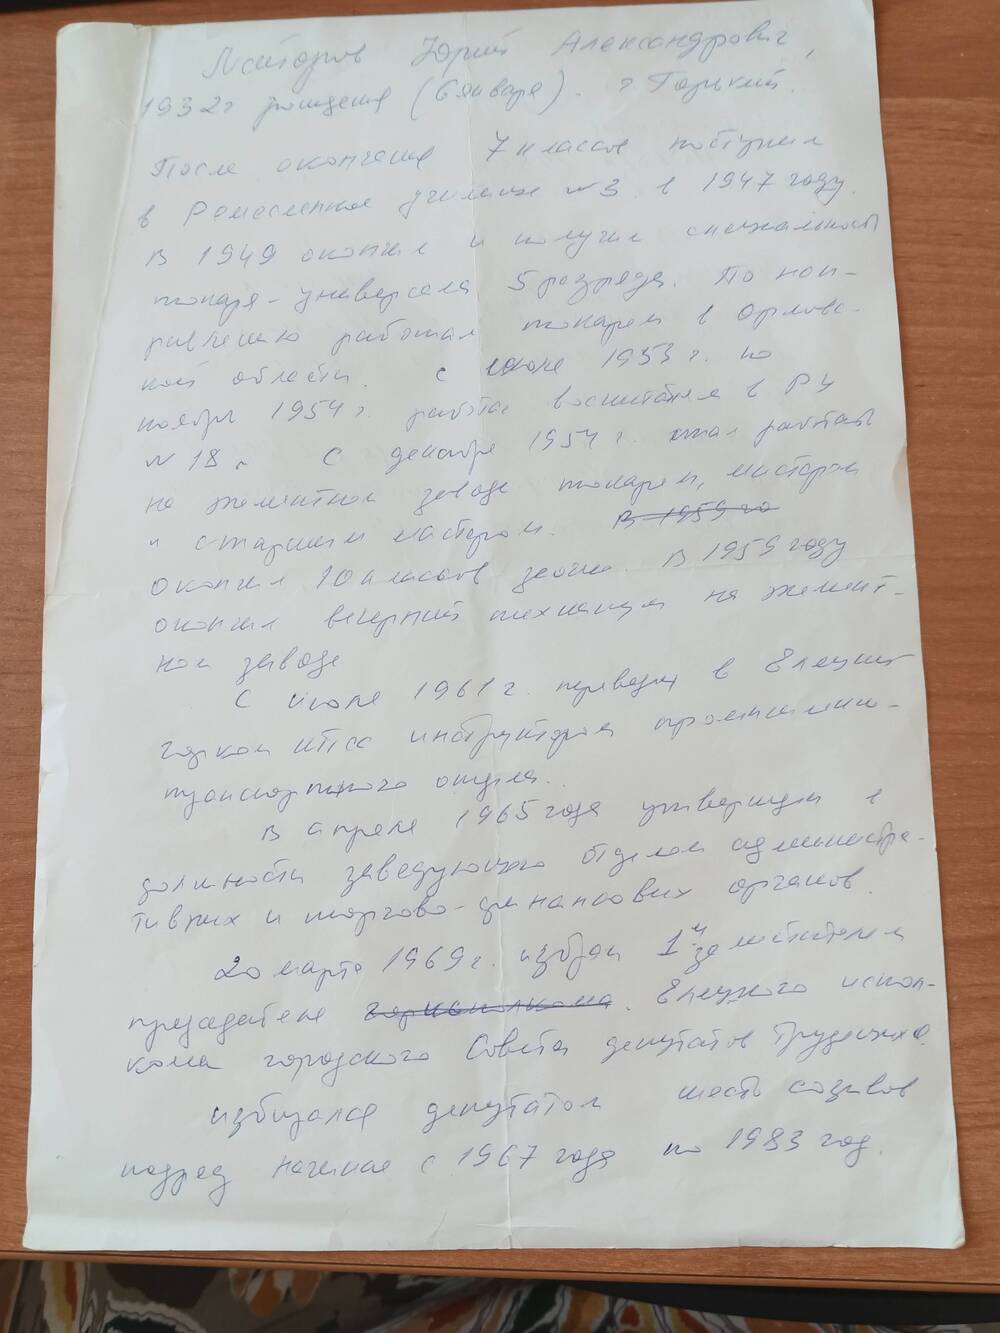 Майоров Юрий Александрович,
1932 г рождения (6 января). г. Горький.
После окончания 7 классов поступил
в Ремесленное училище №3 в 1947 году.
В 1949 окончил и получил специальность
токаря-универсала 5 разряда. По нап-
равлению работал токарем в Орловс-
кой области. С июля 1953 г. по
ноябрь 1954 г. работал воспитателем в РУ
№ 18. С декабря 1954 г. стал работать
на элементном заводе токарем, мастером
и старшим мастером. В 1959 го
окончил 10 классов заочно. В 1959 году
окончил вечерний техникум на элемент-
ном заводе
С июля 1961 г. переведен в Елецкий
горком КПСС инструктором промышленно-
транспортного отдела.
В апреле 1965 года утвержден в
должности заведующего отделом администра-
тивных и торгово-финансовых органов.
20 марта 1969 г. избран 1м заместителем
председателя горисполкома. Елецкого испол-
кома городского Совета депутатов трудящихся.
избирался депутатом шесть созывов
подряд начиная с 1967 года по 1983 год.